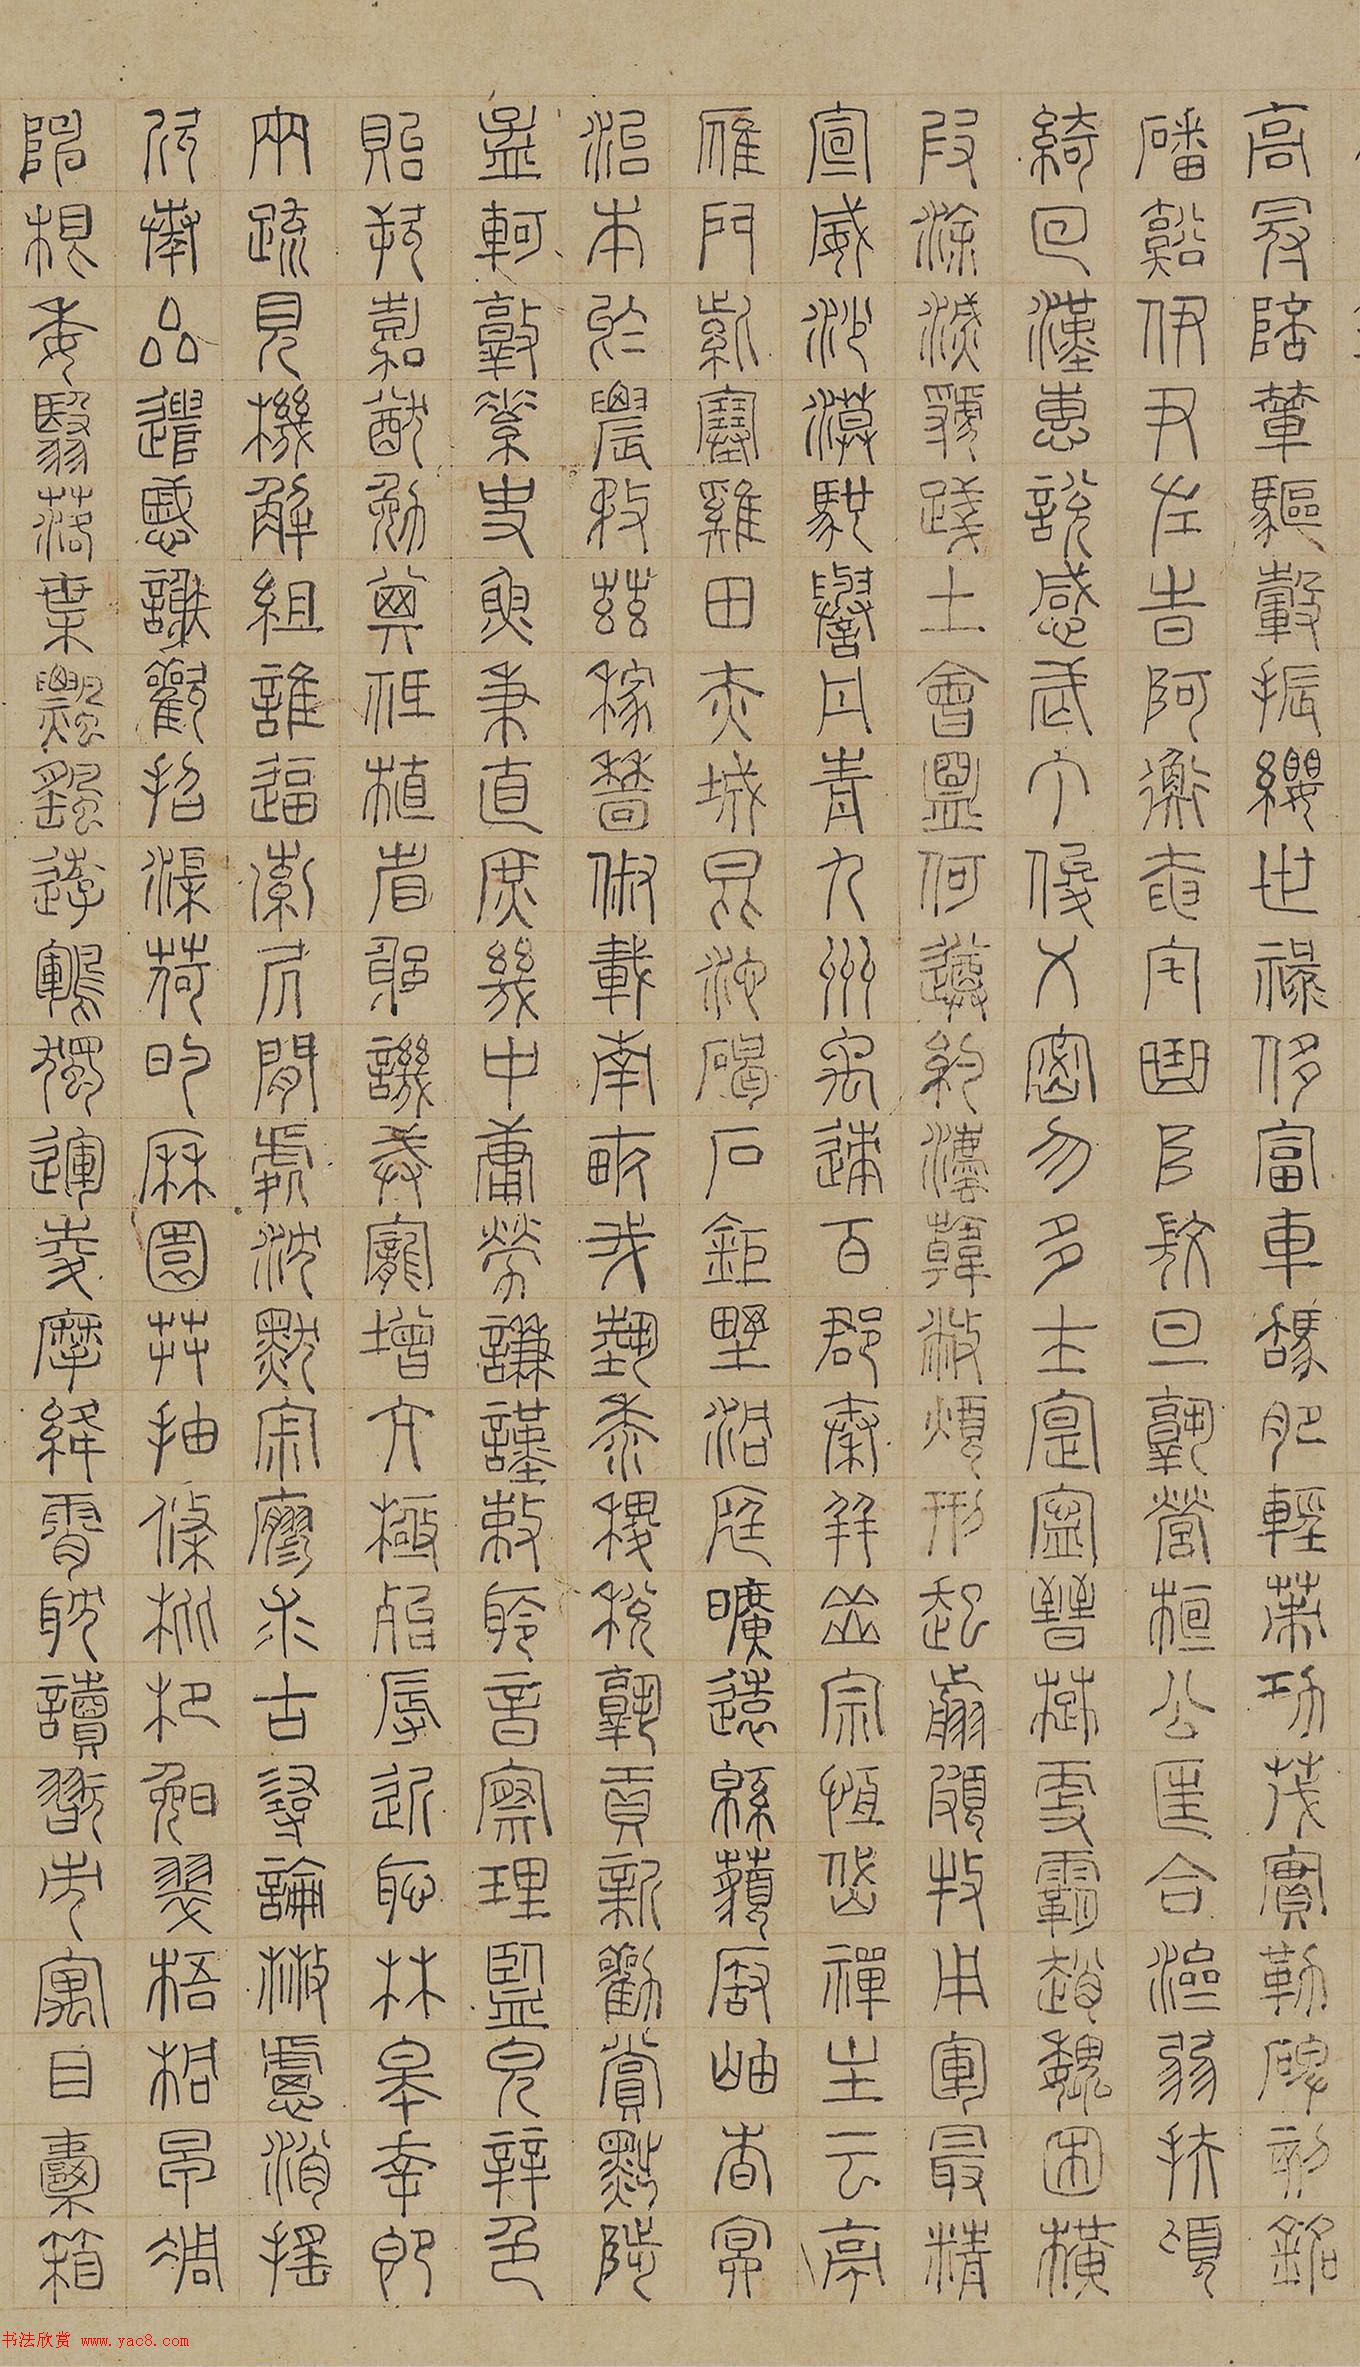 高冠陪輦驅轂振纓世祿侈富車駕肥輕策功茂實勒碑刻銘
磻溪伊尹佐時阿衡奄宅曲阜微旦孰營桓公匡合濟弱扶傾
綺回漢惠說感武丁俊乂密勿多士寔寧晉楚更霸趙魏困橫
假途滅虢踐土會盟何遵約法韓弊煩刑起翦頗牧用軍最精
宣威沙漠馳譽丹青九州禹跡百郡秦并嶽宗恆岱禪主云亭
雁門紫塞雞田赤城昆池碣石鉅野洞庭曠遠綿邈巖岫杳冥
治本於農務茲稼穡俶載南畝我藝黍稷稅熟貢新勸賞黜陟
孟軻敦素史魚秉直庶幾中庸勞謙謹敕聆音察理鑑貌辨色
貽厥嘉猷勉其祗植省躬譏誡寵增抗極殆辱近恥林皋幸即
兩疏見機解組誰逼索居閒處沉默寂寥求古尋論散慮逍遙
欣奏累遣慼謝歡招渠荷的歷園莽抽條枇杷晚翠梧桐早凋
陳根委翳落葉飄颻遊鵾獨運凌摩絳霄耽讀翫市寓目囊箱
书法欣赏 www.yac8.com